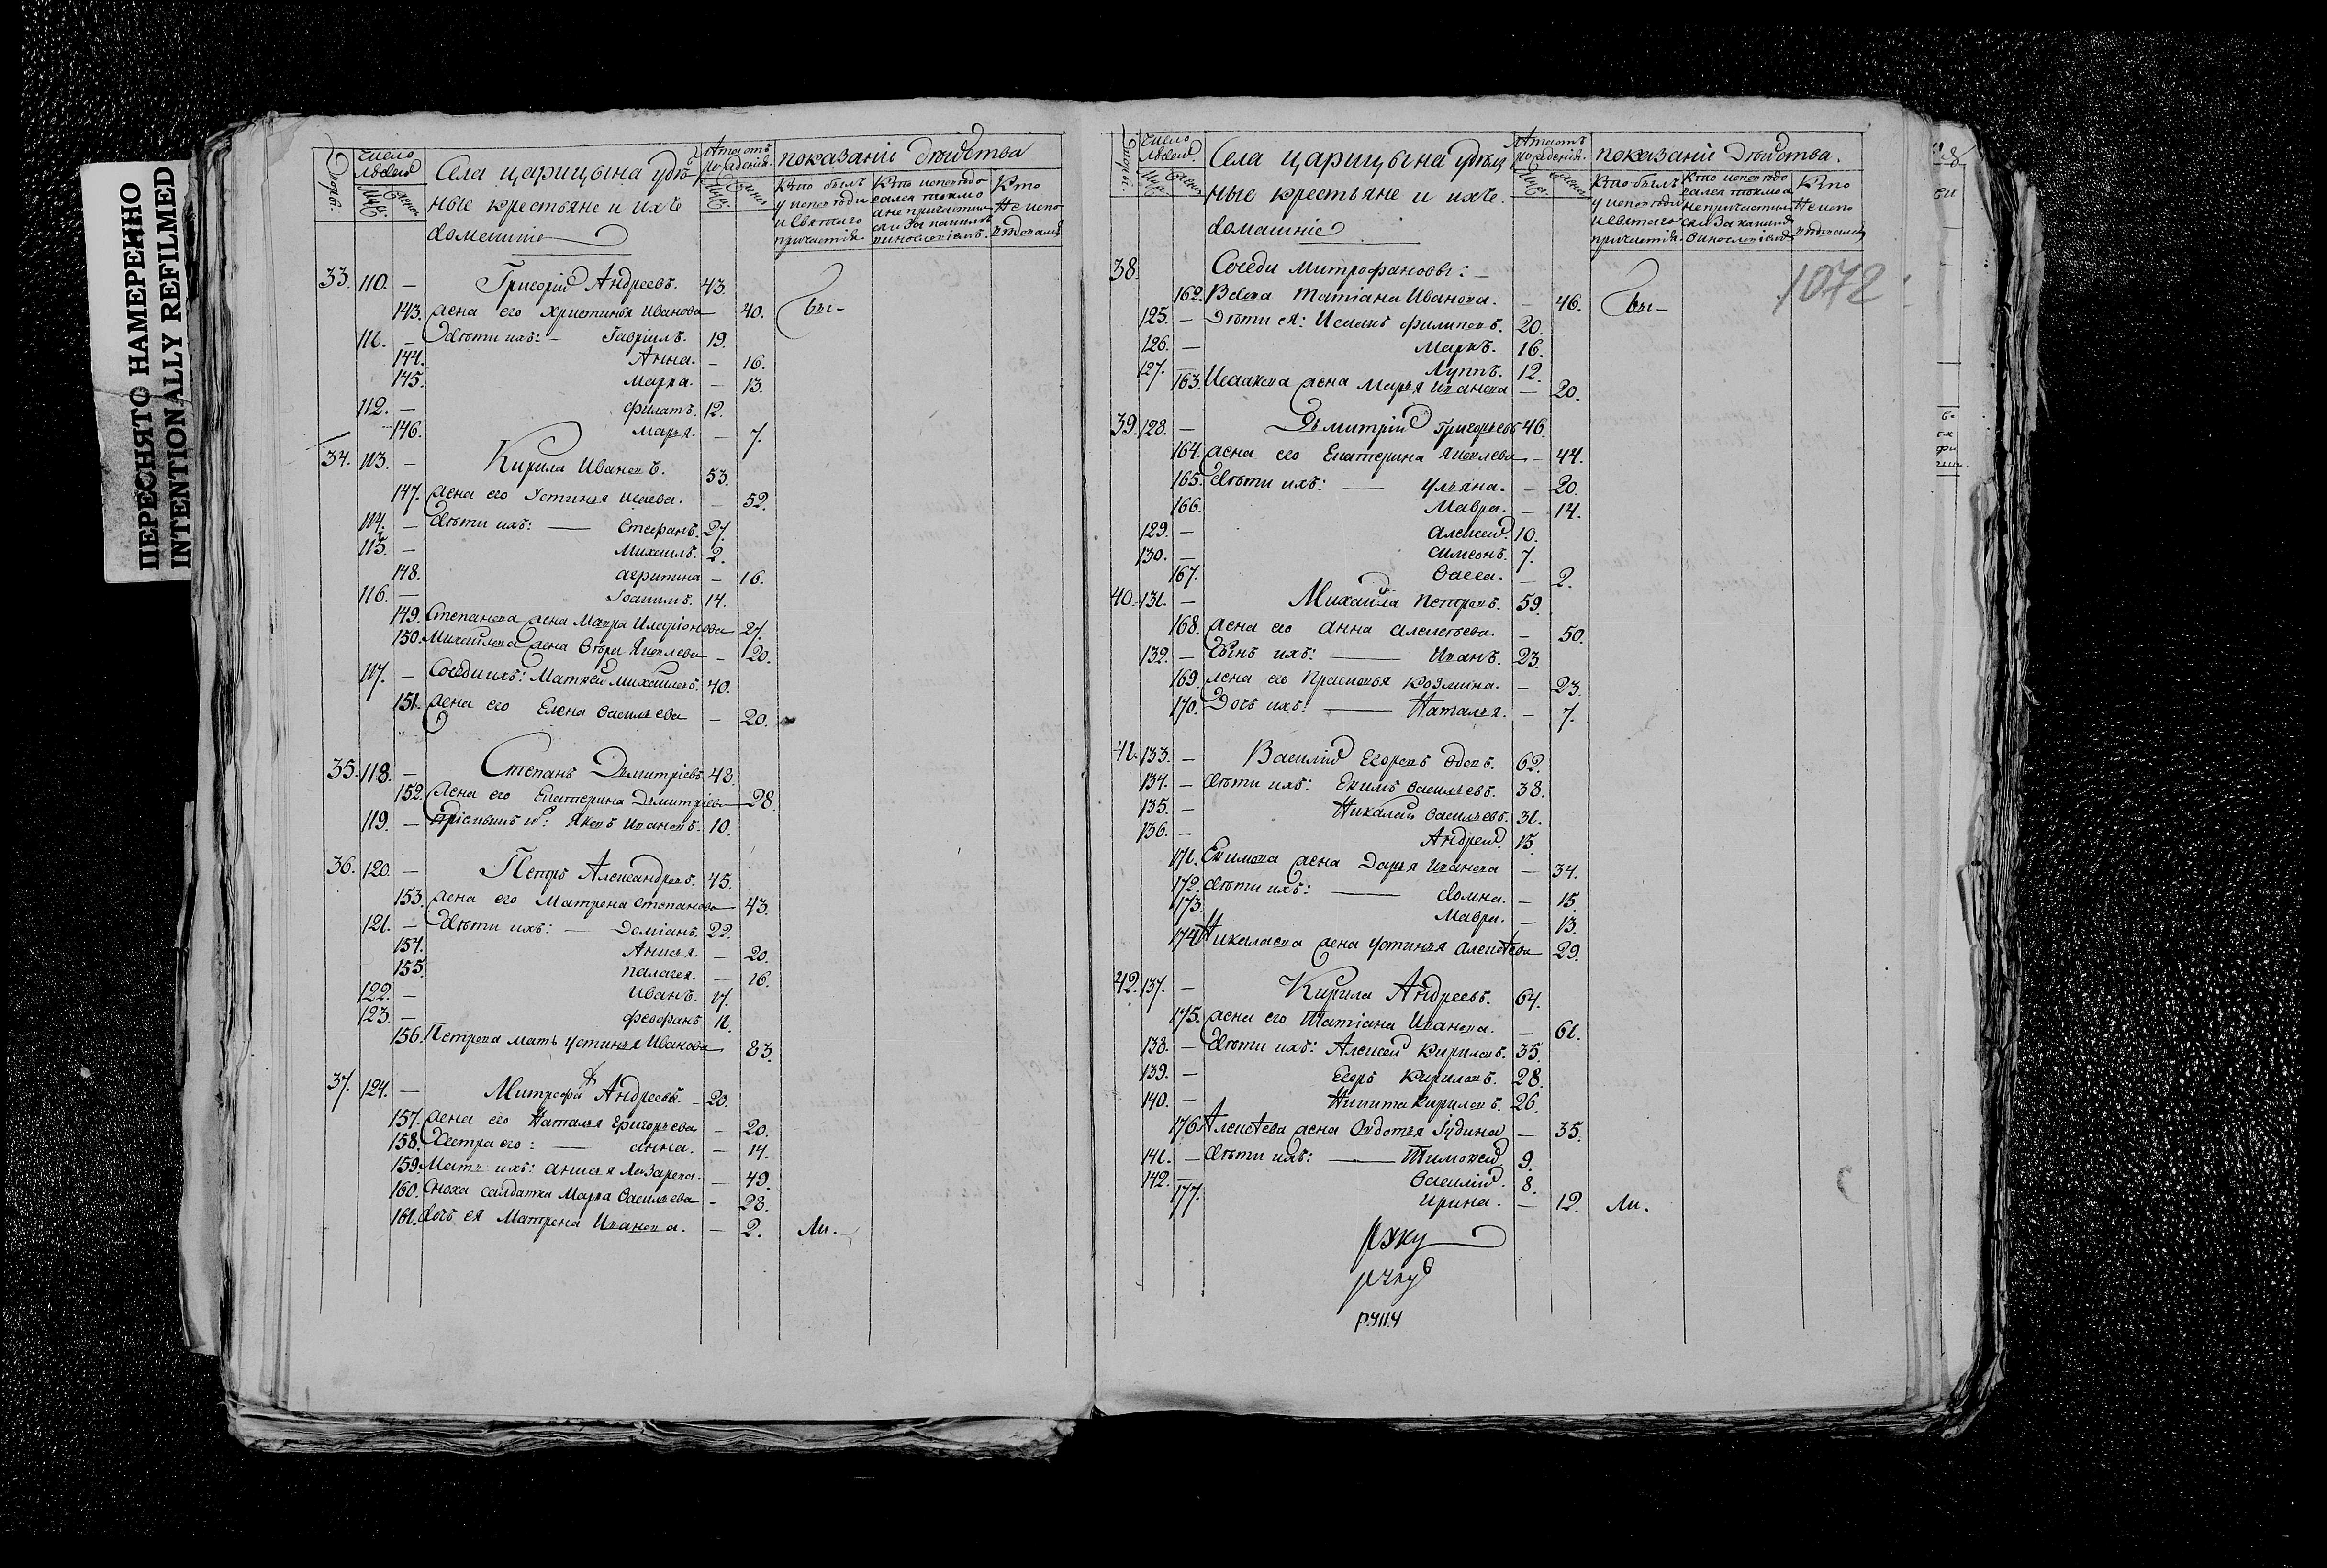 ПЕРЕСНЯТО НАМЕРЕННО
INTENTIONALLY REFILMED
Число людей
Села царицына удѣль-
ные крестьяне и ихъ
домашніе
Лѣта отъ рожденія
показаніе дѣйства
Кто былъ у исповѣди и святаго причастія
Кто исповѣдался токмо а не причастился и за какимъ винословіемъ.
Кто не исповѣдался
33. 110. — Григорій Андреевъ. 43.
143. жена его Христинья Иванова — 40. бы-
111. — Дѣти ихъ: — Гавріилъ. 19.
144. Анна. — 16.
145. Марѳа. — 13.
112. — Филатъ. 12.
146. Марья. — 7.
34. 113. — Кирила Ивановъ. 53.
147. жена его Устинья Исаева. — 52.
114. — Дѣти ихъ: — Стефанъ. 27.
115. — Михаилъ. 2.
148. Агрипина — 16.
116. — Іоакимъ. 14.
149. Степанова жена Мавра Иларіонова 27.
150. Михайлова жена Яковлева — 20.
117. — Соседи ихъ: Матвей Михайловъ. 40.
151. жена его Елена Васильева — 20.
35. 118. — Степанъ Дмитріевъ 48.
152. жена его Екатерина Дмитріева — 28.
119. — пріемышъ и: Яковъ Ивановъ. 10.
36. 120. — Петръ Александровъ. 45.
153. жена его Матрена Степанова — 43.
121. — Дѣти ихъ: — Доміанъ. 22.
154. Анисья. — 20.
155. палагея. — 16.
122. — Иванъ. 17.
123. — феофанъ 11.
156. Петрова мать Устинья Иванова 83.
37. 124. — Митрофа Андреевъ. — 20.
157. жена его Наталья Григорьева — 20.
158. Сестра его: — анна. — 14.
159. Мать ихъ: анисья Лазарева. — 49.
160. Сноха салдатка Марѳа Васильева — 28.
161. дочь ея Матрена Иванова. — 2. ли.
Число людей
Села царицына удѣль
ные крестьяне и ихъ.
домашніе
Лѣта отъ рожденія.
показаніе дѣйства.
Кто былъ у исповѣди и святаго причастія.
Кто исповѣдался токмо а не причастился и за какимъ винословіемъ
Кто не исповѣдался
1072
38. Соседи Митрофановы: —
162. Вдова Татіана Иванова. — 46. бы-
125. — Дѣти ея: Исаакъ филиповъ. 20.
126. — Маркъ. 16.
127. — Луппъ. 12.
163. Исаакова жена Марья Иванова — 20.
39. 128. — Дмитрій Григорьевъ 46.
164. жена его Екатерина Яковлева — 44.
165. Дѣти ихъ: — Ульяна. — 20.
166. Мавра. — 14.
129. — Алексей. 10.
130. — Симеонъ. 7.
167. Васса. — 2.
40. 131. — Михайла Петровъ. 59.
168. жена его Анна Алексеева. — 50.
132. — Сынъ ихъ: — Иванъ. 23.
169. жена его Прасковья Козмина. — 23.
170. Дочь ихъ: — Наталья. — 7.
41. 133. — Василій Егоровъ вдовъ. 62.
134. — Дѣти ихъ: Екимъ Васильевъ. 38.
135. — Николай Васильевъ. 31.
136. — Андрей. 15.
171. Екимова жена Дарья Иванова — 34.
172. Дѣти ихъ: — домна. — 15.
173. Мавра. — 13.
174. Николаева жена Устинья Алексеева 29.
42. 137. — Кирила Андреевъ. 64.
175. жена его Татіана Иванова. — 61.
138. — Дѣти ихъ: Алексей Кириловъ. 35.
139. — Егоръ Кириловъ. 28.
140. — Никита Кириловъ. 26.
176. Алексеева жена Овдотья Іудина — 35.
141. — Дѣти ихъ: — Тимофей 9.
142. — Василій. 8.
177. Ирина. — 12. ли.